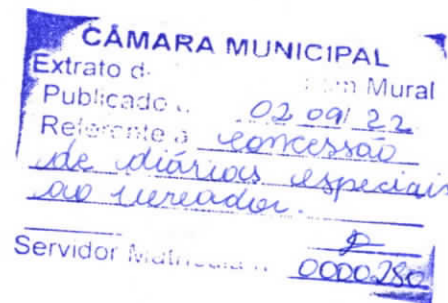 CÂMARA MUNICIPAL
Extrato d Mural
Publicado 02 09 22
Referente a concessão
de diárias especiais
ao vereador.
Servidor Matrícula 0000280